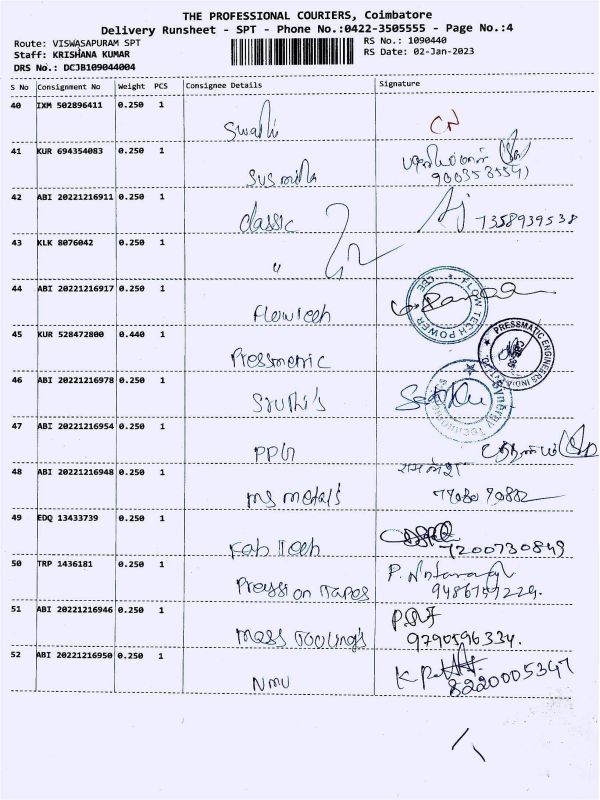 THE PROFESSIONAL COURIERS, Coimbatore
Delivery Runsheet - SPT - Phone No.:0422-3505555 - Page No.:4
Route: VISWASAPURAM SPT
RS No.: 1090440
Staff: KRISHANA KUMAR
RS Date: 02-Jan-2023
DRS No.: DCJB109044004
S No Consignment No Weight PCS Consignee Details Signature
40 IXM 502896411 0.250 1
Swathi CN
41 KUR 694354083 0.250 1
Susmitha
42 ABI 20221216911 0.250 1
classic 7358939538
43 KLK 8076042 0.250 1
"
44 ABI 20221216917 0.250 1
Flowtech FLOW TECH POWER
45 KUR 528472800 0.440 1
Pressmetric PRESSMATIC ENGINEERS INDIA
46 ABI 20221216978 0.250 1
Sruthi's
47 ABI 20221216954 0.250 1
48 ABI 20221216948 0.250 1
ms metals
49 EDQ 13433739 0.250 1
Fab Tech 7200730849
50 TRP 1436181 0.250 1
Preyssion Tapes
51 ABI 20221216946 0.250 1
mass Toolings 9790596334.
52 ABI 20221216950 0.250 1
NMU 8220005347